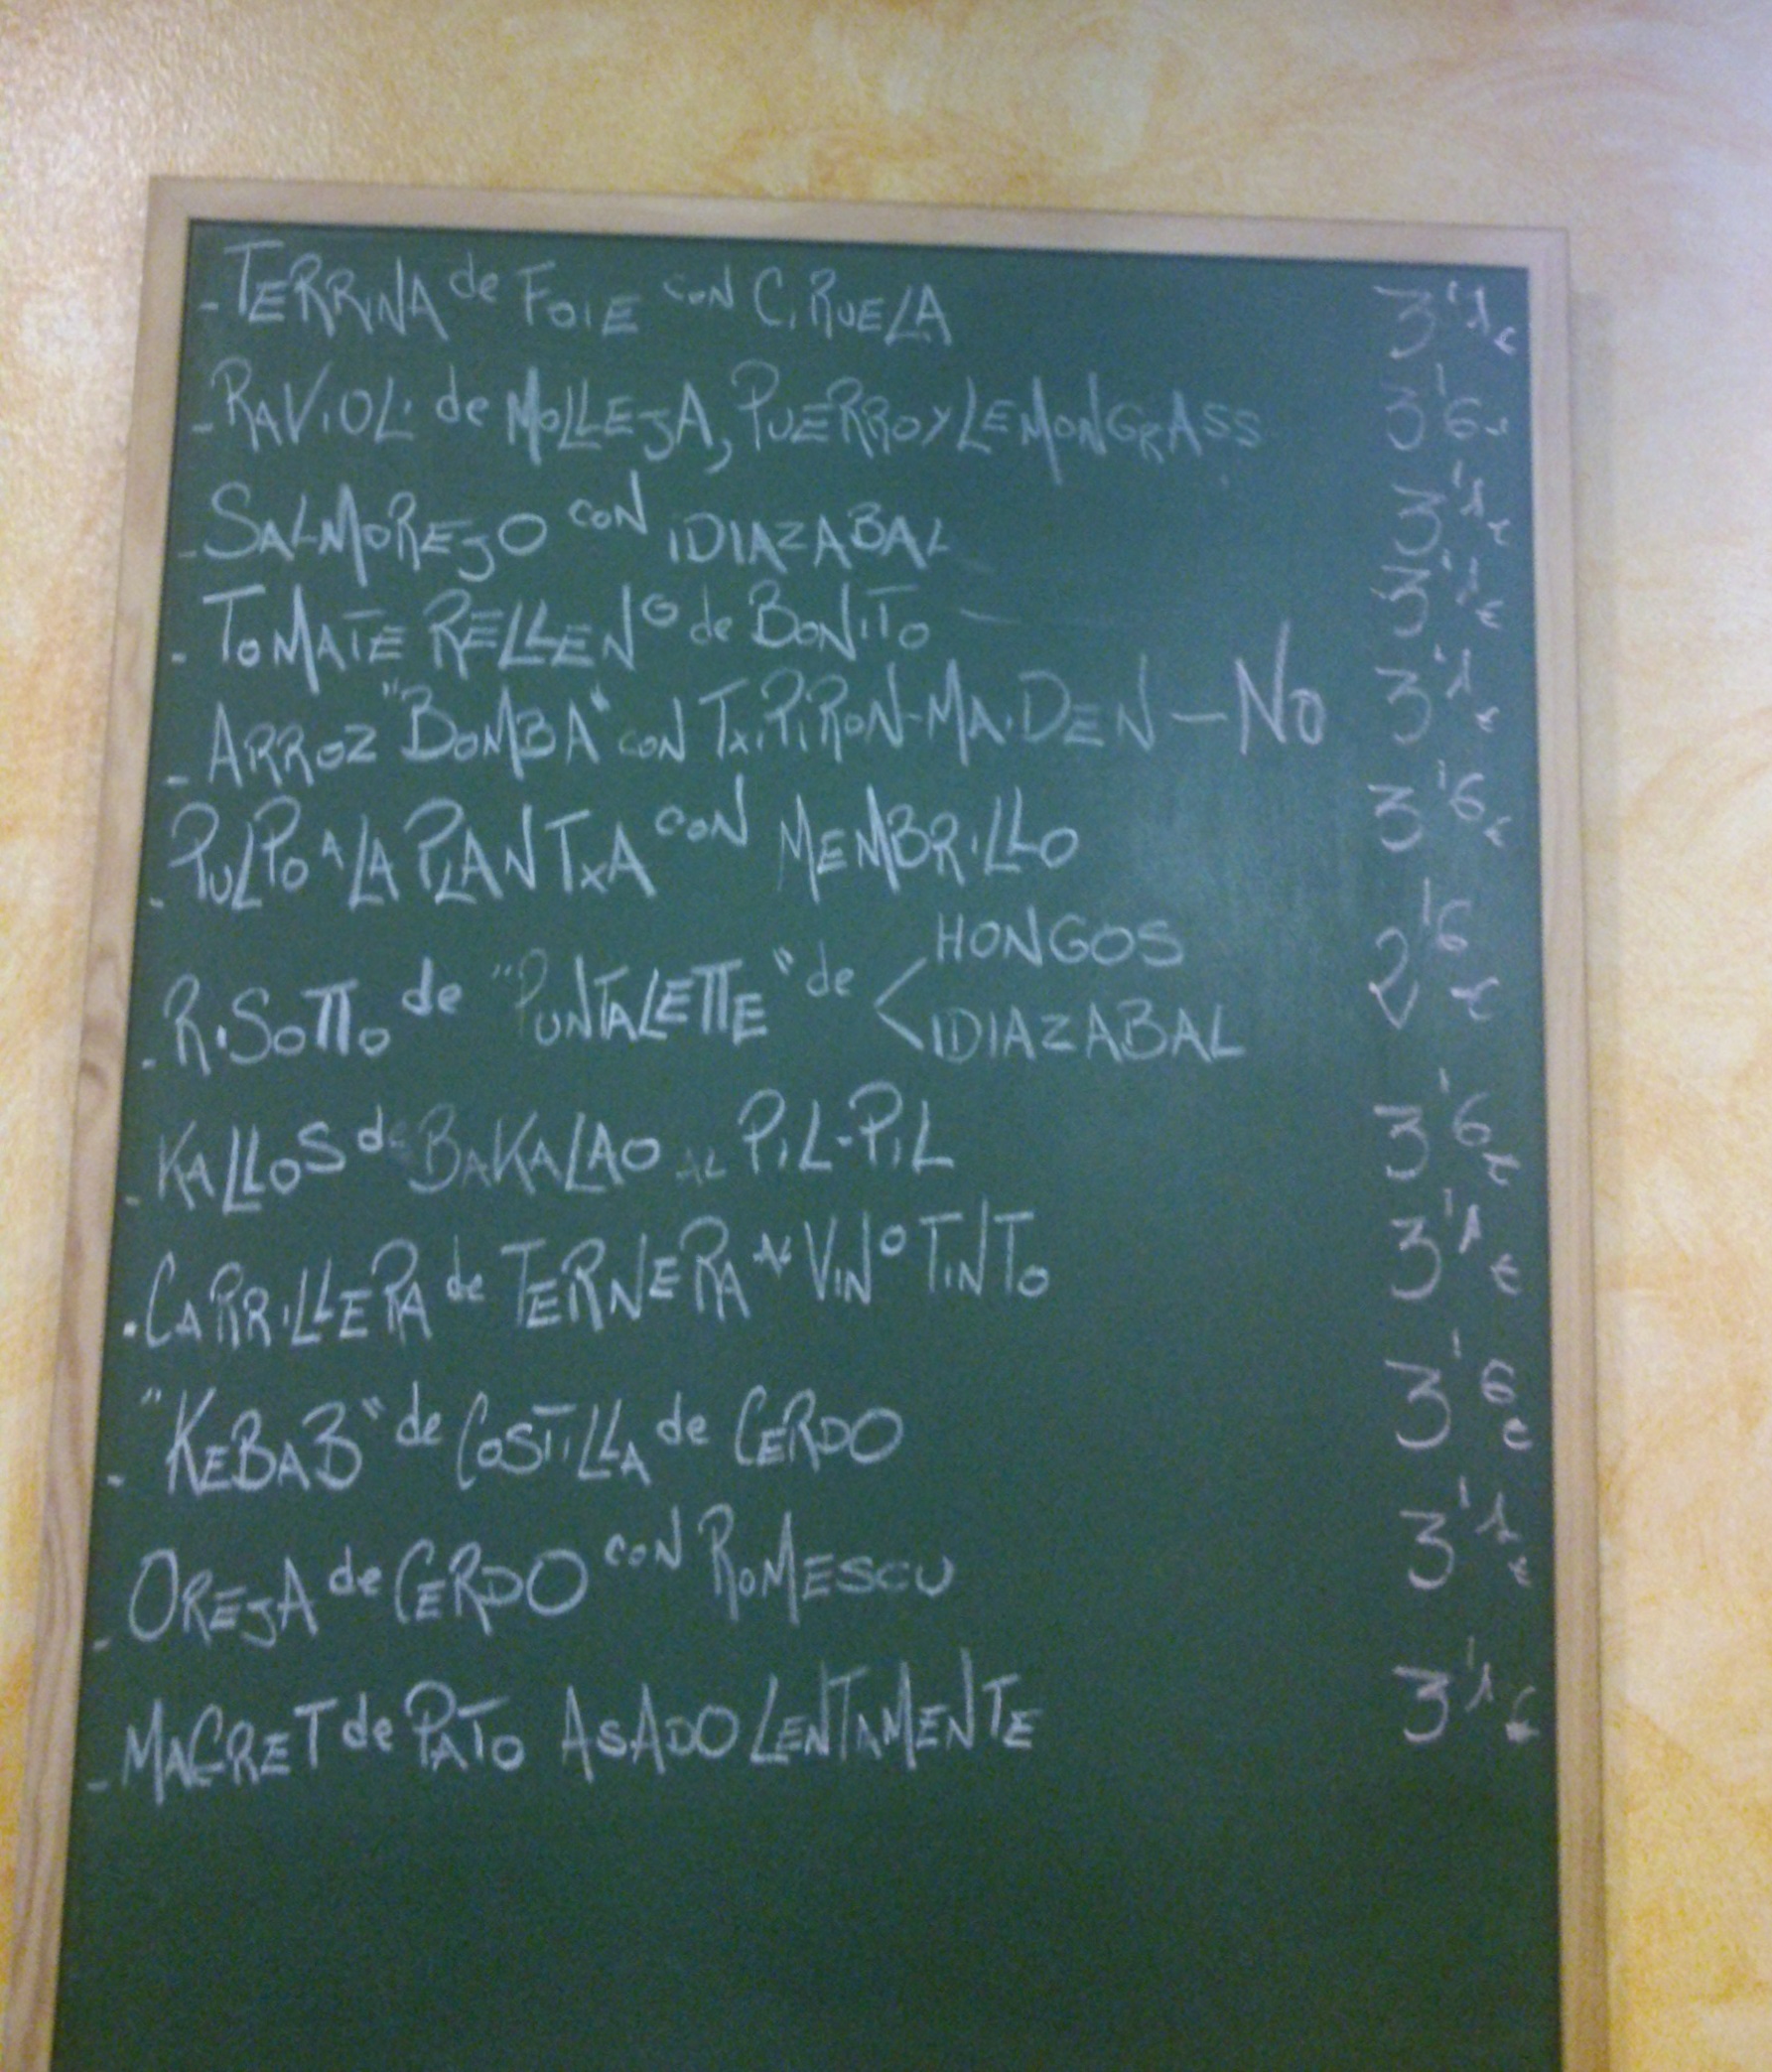 - TERRINA de FOIE CON CIRUELA 3'1 €
- RAVIOLI de MOLLEJA, PUERRO Y LEMONGRASS 3'6 €
- SALMOREJO CON IDIAZABAL 3'1 €
- TOMATE RELLENO de BONITO 3'1 €
- ARROZ "BOMBA" CON TXIPIRON-MAIDEN - NO 3'1 €
- PULPO A LA PLANTXA CON MEMBRILLO 3'6 €
- RISOTTO de "PUNTALETTE" de < HONGOS 2'6 €
IDIAZABAL
- KALLOS de BAKALAO AL PIL-PIL 3'6 €
- CARRILLERA de TERNERA AL VINO TINTO 3'1 €
- "KEBAB" de COSTILLA de CERDO 3'6 €
- OREJA de CERDO CON ROMESCU 3'1 €
- MAGRET de PATO ASADO LENTAMENTE 3'1 €